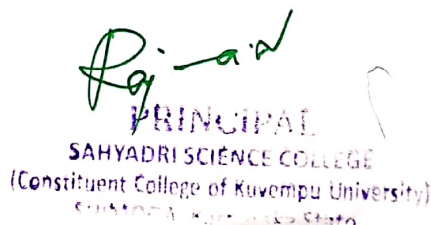 PRINCIPAL
SAHYADRI SCIENCE COLLEGE
(Constituent College of Kuvempu University)
State